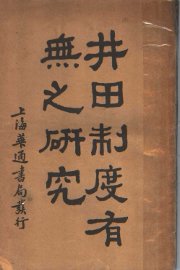 井田制度有
無之研究
上海華通書局發行